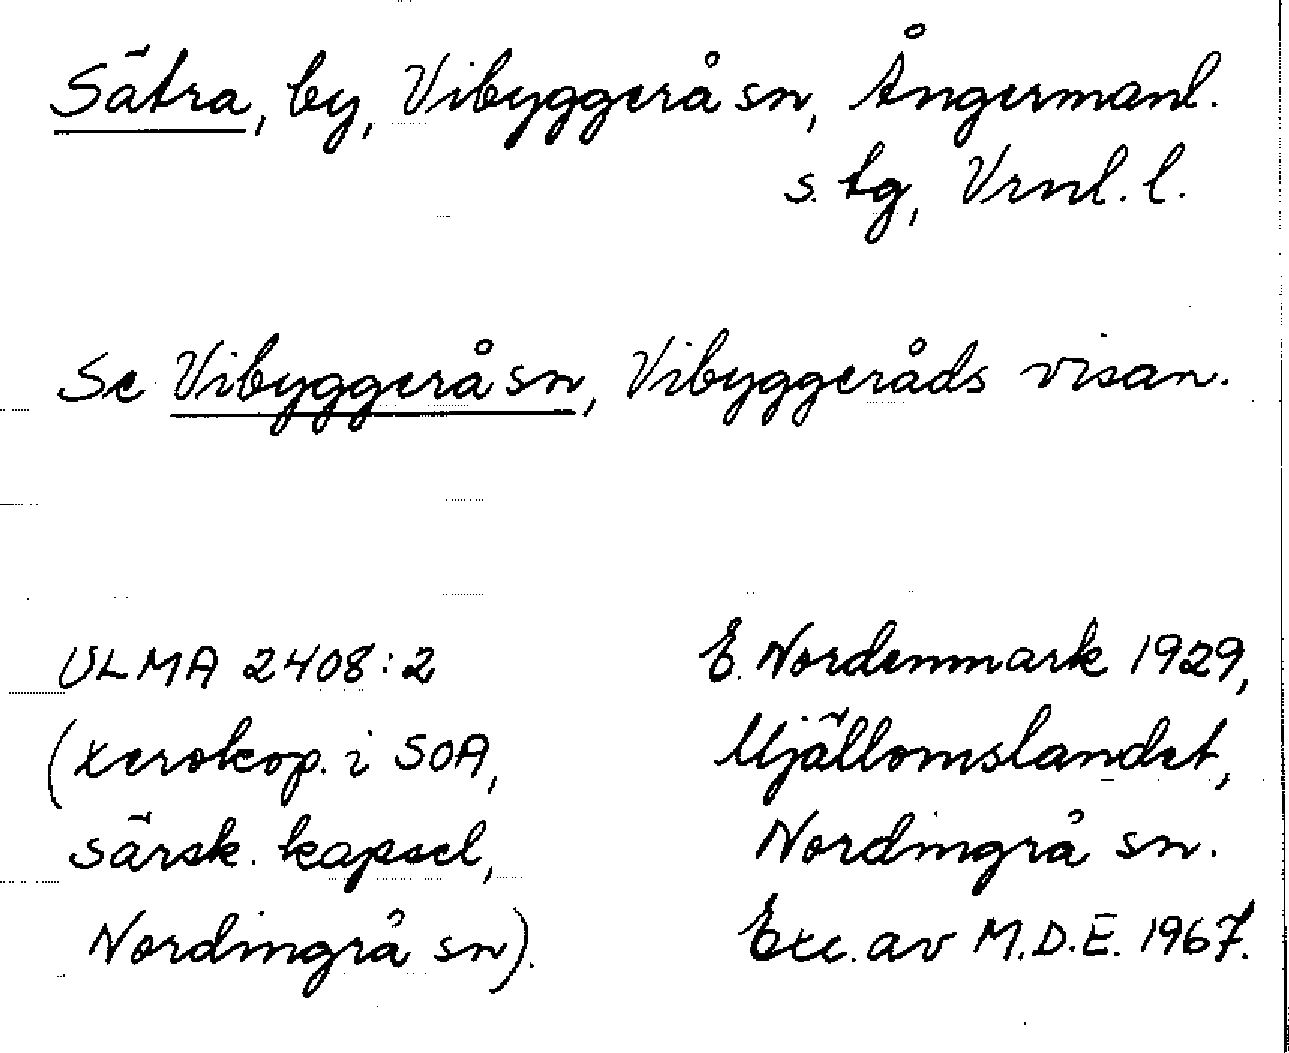 Sätra, by, Vibyggerå sn, Ångermanl.
s. tg, Vrnl. l.
Se Vibyggerå sn, Vibyggeråds visan.
ULMA 2408:2
(xerokop. i SOA,
särsk. kapsel,
Nordingrå sn).
E. Nordenmark 1929,
Mjällomslandet,
Nordingrå sn.
Exc. av M.D.E. 1967.